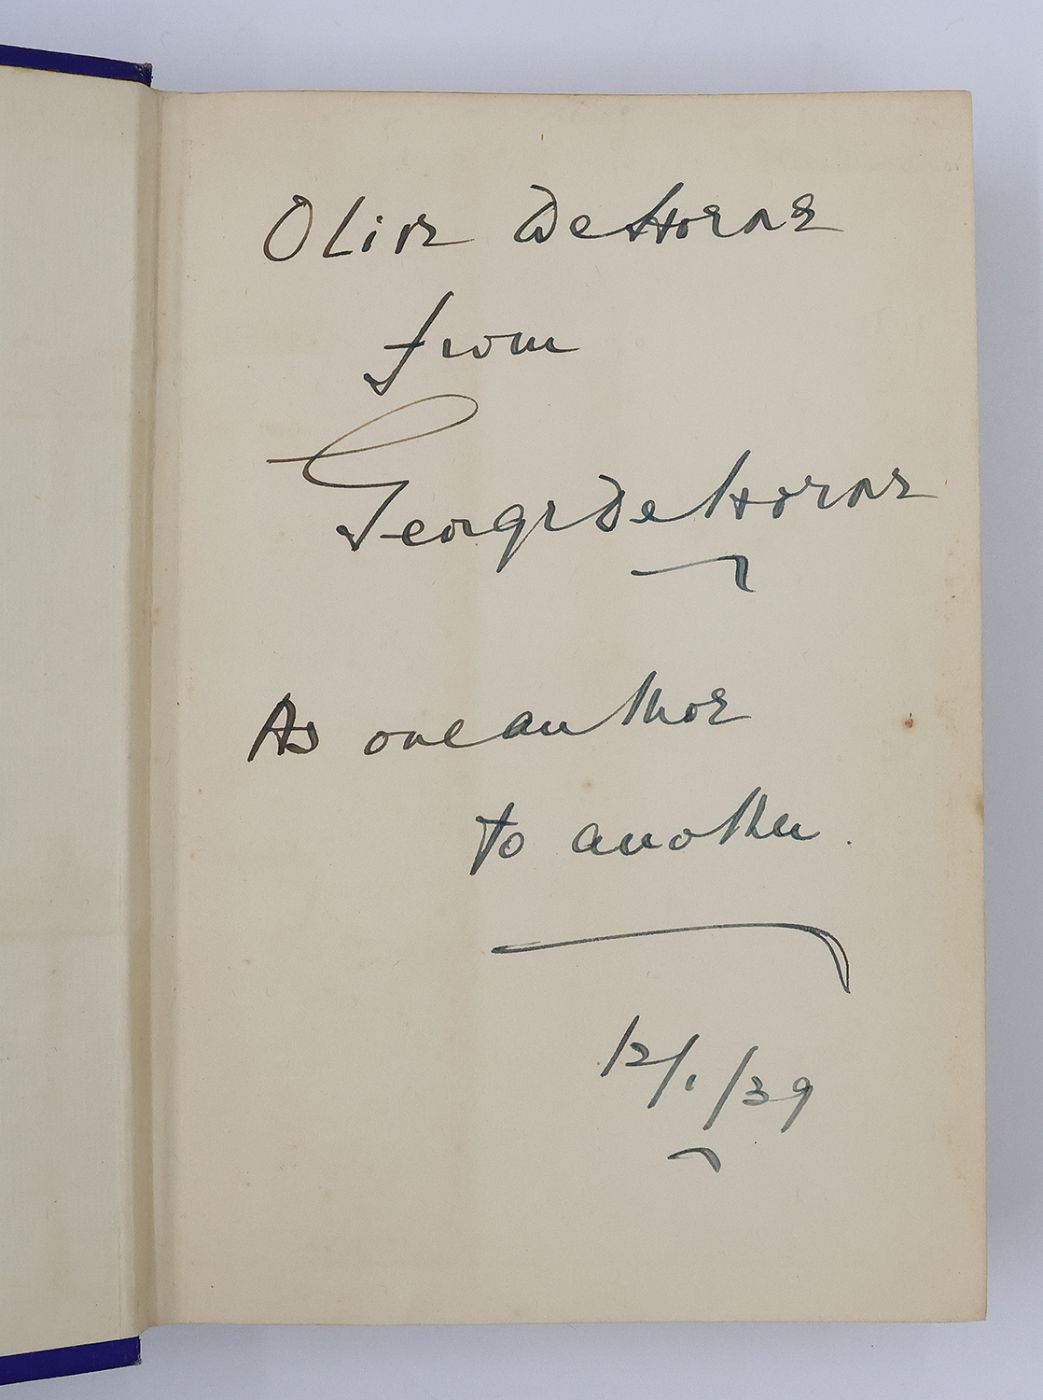 Olive De Horne
from
George De Horne
As one author
to another.
12/1/39